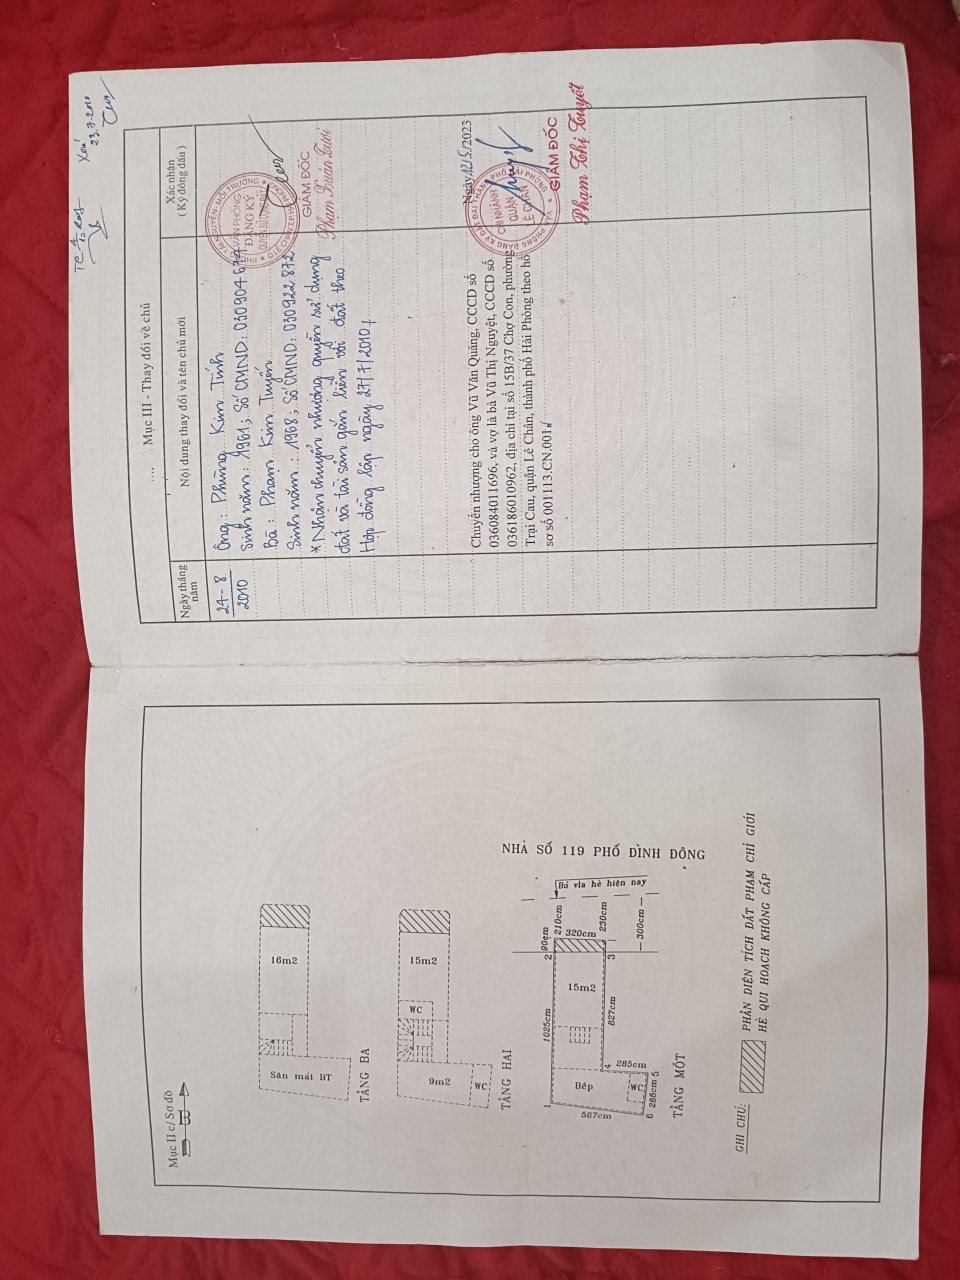 Mục II c/ Sơ đồ
B
16m2
Sân mái BT
TẦNG BA
15m2
WC
9m2
WC
TẦNG HAI
NHÀ SỐ 119 PHỐ ĐÌNH ĐÔNG
Bó vỉa hè hiện nay
90cm
210cm
2
320cm
230cm
300cm
3
1025cm
15m2
827cm
4
285cm
Bếp
WC
5
1
587cm
288cm
6
TẦNG MỘT
GHI CHÚ:
PHẦN DIỆN TÍCH ĐẤT PHẠM CHỈ GIỚI
HÈ QUI HOẠCH KHÔNG CẤP
Xoá
23.7.2010
... Mục III - Thay đổi về chủ
Ngày tháng năm
Nội dung thay đổi và tên chủ mới
Xác nhận
( Ký đóng dấu )
24 - 8
2010
Ông : Phùng Kim Tính
Sinh năm : 1961; Số CMND: 030904674
Bà : Phạm Kim Tuyến
Sinh năm : 1968; Số CMND: 030922872
* Nhận chuyển nhượng quyền sử dụng
đất và tài sản gắn liền với đất theo
Hợp đồng lập ngày 27/7/2010
VĂN PHÒNG
ĐĂNG KÝ
QUYỀN SỬ DỤNG ĐẤT
GIÁM ĐỐC
Phạm Xuân Tươi
Chuyển nhượng cho ông Vũ Văn Quảng, CCCD số
036084011696, và vợ là bà Vũ Thị Nguyệt, CCCD số
036186010962, địa chỉ tại số 15B/37 Chợ Con, phường
Trại Cau, quận Lê Chân, thành phố Hải Phòng theo hồ
sơ số 001113.CN.001
Ngày 12/5/2023
CHI NHÁNH
QUẬN
LÊ CHÂN
GIÁM ĐỐC
Phạm Thị Tuyết